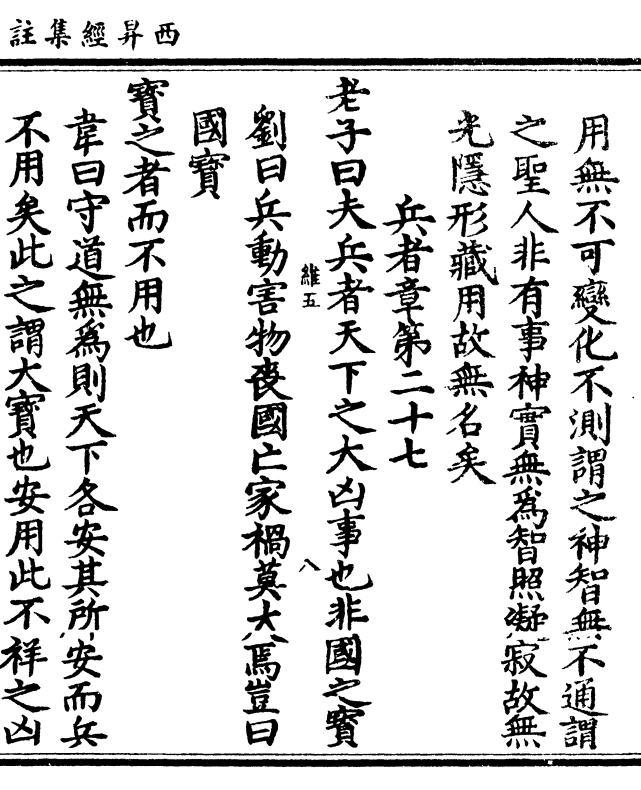 西昇經集註
用無不可變化不測謂之神智無不通謂
之聖人非有事神實無為智照凝寂故無
光隱形藏用故無名矣
兵者章第二十七
老子曰夫兵者天下之大凶事也非國之寶
維五
八
劉曰兵動害物喪國亡家禍莫大焉豈曰
國寶
寶之者而不用也
韋曰守道無為則天下各安其所安而兵
不用矣此之謂大寶也安用此不祥之凶